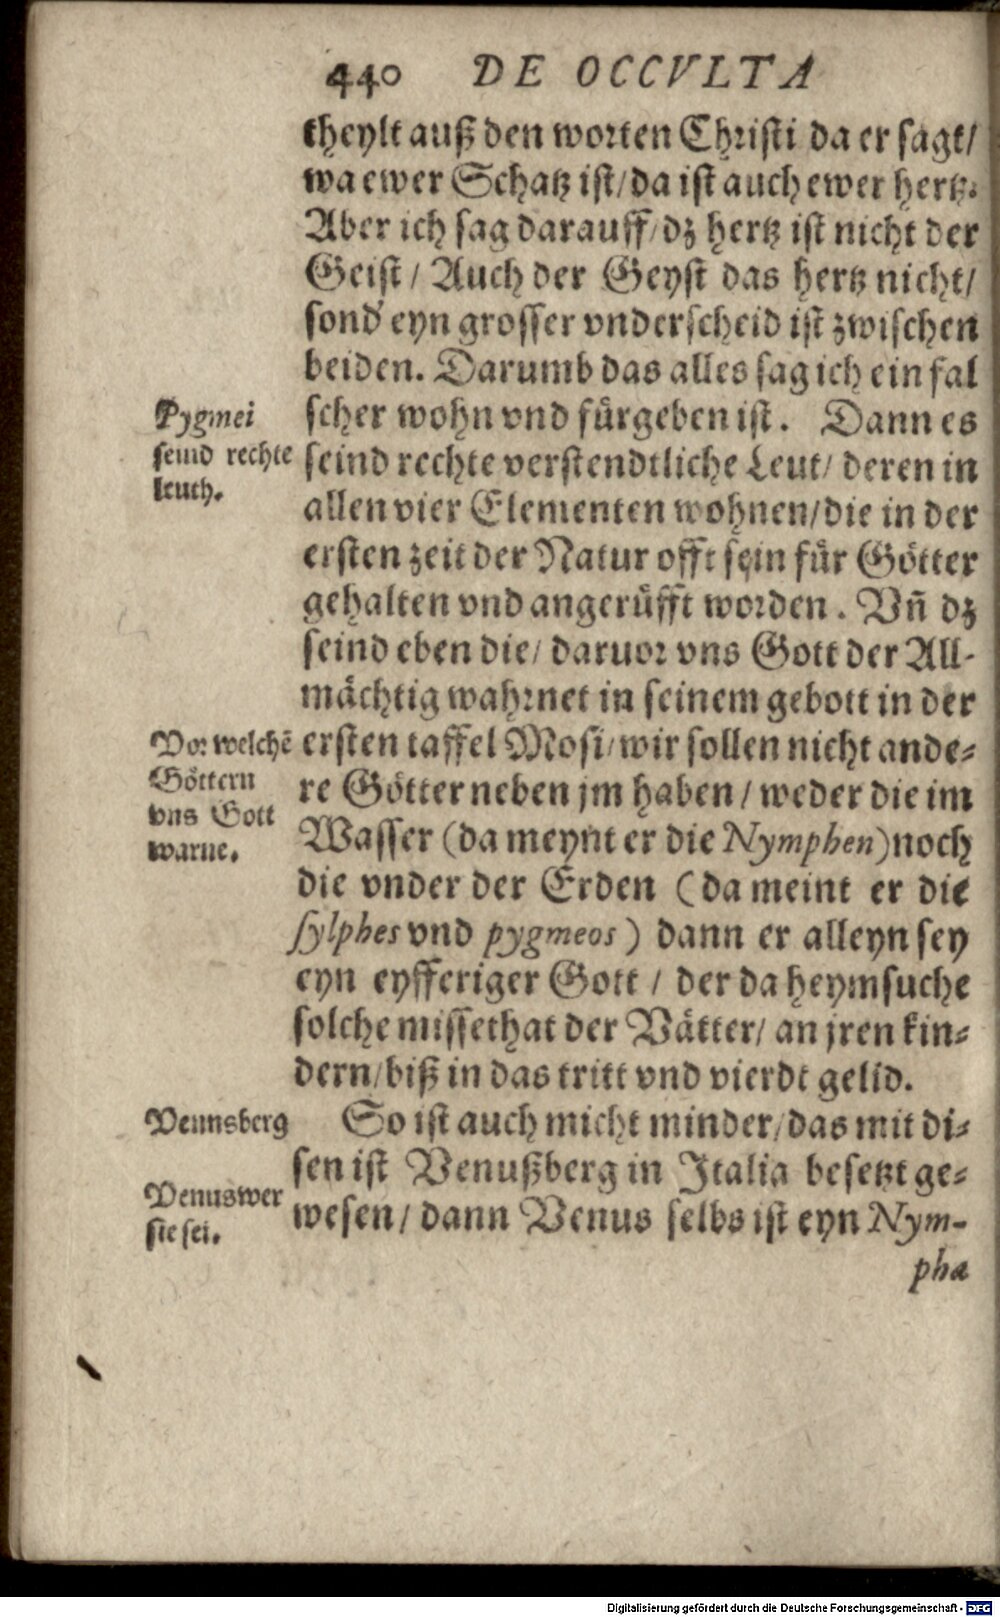 440 DE OCCVLTA
theylt auß den worten Christi da er sagt/
wa ewer Schatz ist/ da ist auch ewer hertz.
Aber ich sag darauff/ dz hertz ist nicht der
Geist / Auch der Geyst das hertz nicht/
sond' eyn grosser vnderscheid ist zwischen
beiden. Darumb das alles sag ich ein fal
scher wohn vnd fürgeben ist. Dann es
seind rechte verstendtliche Leut/ deren in
allen vier Elementen wohnen/ die in der
ersten zeit der Natur offt sein für Götter
gehalten vnd angerüfft worden. Vñ dz
seind eben die/ daruor vns Gott der All-
mächtig wahrnet in seinem gebott in der
ersten taffel Mosi/ wir sollen nicht ande-
re Götter neben jm haben / weder die im
Wasser (da meynt er die Nymphen) noch
die vnder der Erden (da meint er die
sylphes vnd pygmeos) dann er alleyn sey
eyn eyfferiger Gott / der da heymsuche
solche missethat der Vätter/ an jren kin-
dern/ biß in das tritt vnd vierdt gelid.
So ist auch micht minder/ das mit di-
sen ist Venußberg in Italia besetzt ge-
wesen/ dann Venus selbs ist eyn Nym-
pha
Pygmei
seind rechte
leuth.
Vor welchē
Göttern
vns Gott
warne.
Vennsberg
Venus wer
sie sei.
Digitalisierung gefördert durch die Deutsche Forschungsgemeinschaft - DFG